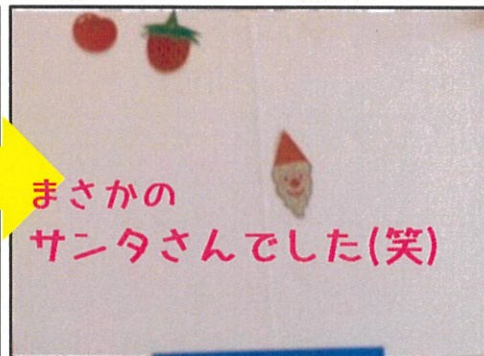 まさかの
サンタさんでした(笑)